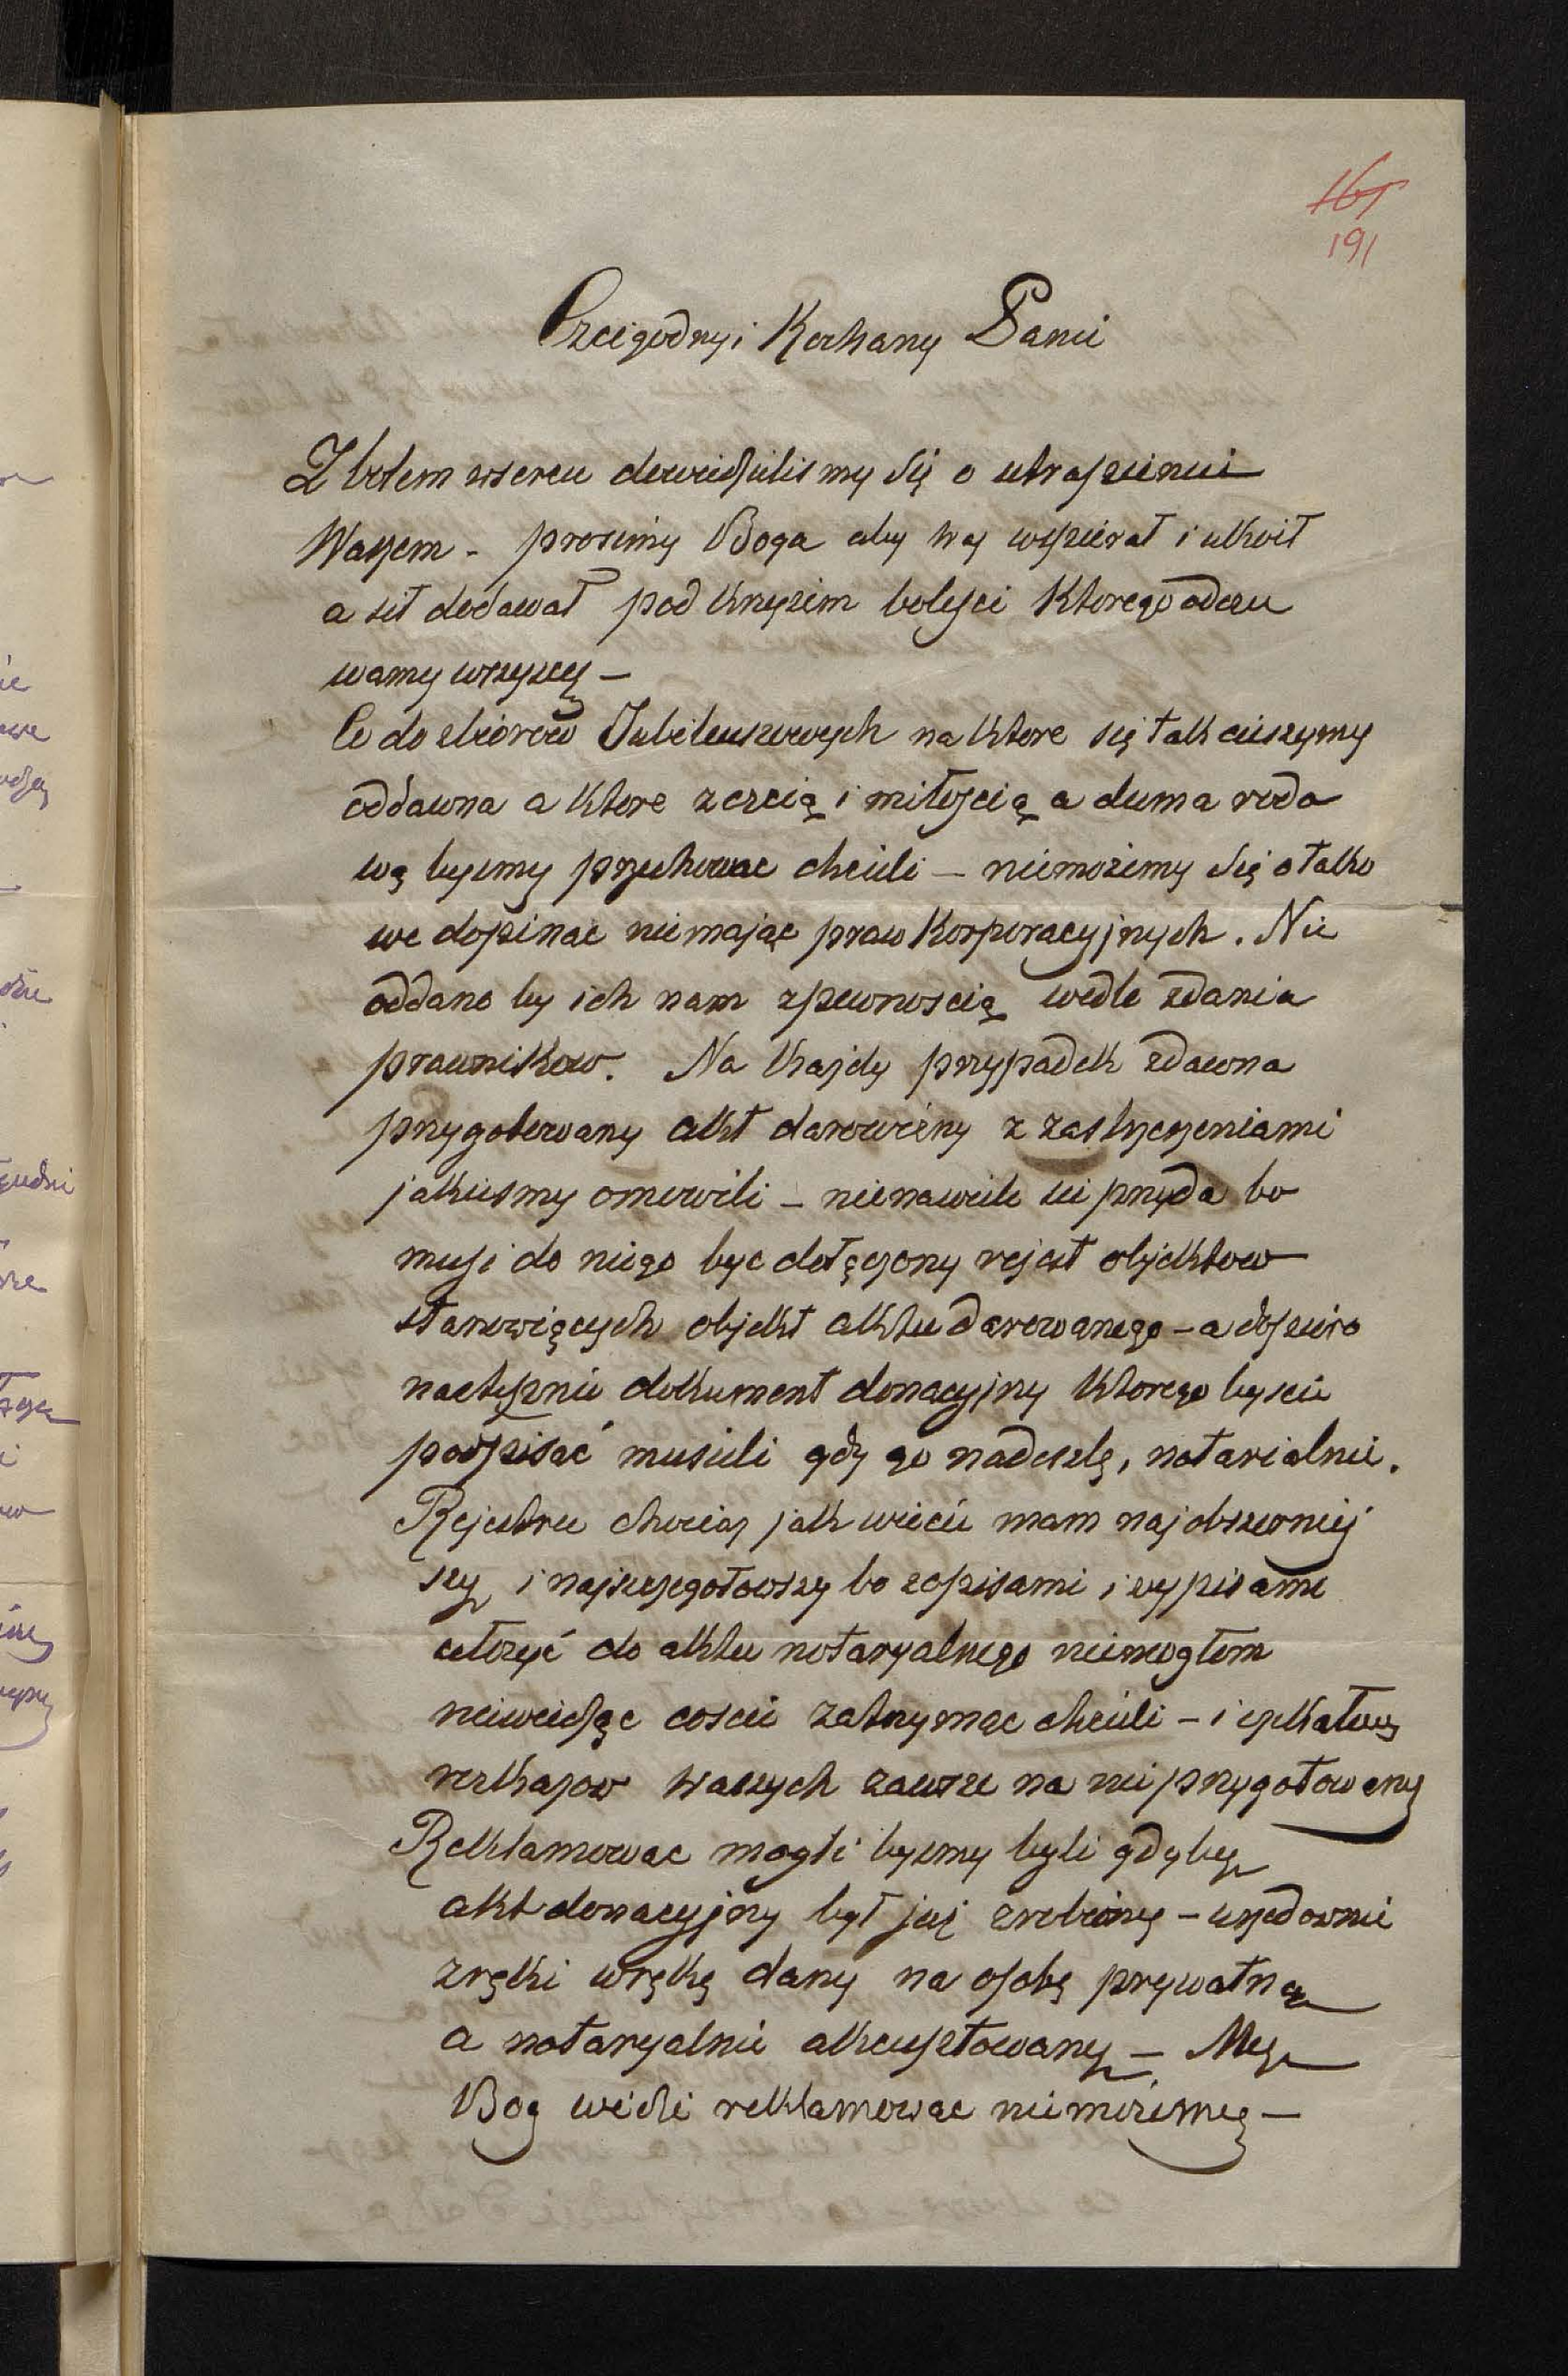 161
191
Czcigodny i Kochany Panie
Z bolem w sercu dowiedzielismy się o utrapieniu
Waszem - prosimy Boga aby Was wspierał i ukoił
a sił dodawał pod krzyżem boleści którego odczu
wamy wszyscy -
Co do zbiorów Jubileuszowych na które się tak cieszymy
oddawna a które z czcią i miłością a duma roda
wą bysmy przechować chcieli - niemożemy się o tako
we dopinac niemając praw Korporacyjnych. Nie
oddano by ich nam z pewnoscią wedle zdania
prawnikow. Na każdy przypadek zdawna
przygotowany akt darowizny z zastrzeżeniami
jakiesmy omowili - nienawiele sie przyda bo
musi do niego byc dołączony rejest objektow
stanowiących objekt aktu darowanego - a dopiero
następnie dokument donacyjny którego byscie
podpisać musieli gdy go nadeszlę, notarialnie.
Rejestru chociaż jak wiecie mam najobszerniej
szy i najszczegołowszy bo z opisami i wypisami
złożyć do aktu notaryalnego niemogłem
niewiedząc coscie zatrzymac chcieli - i czekałem
rozkazow waszych zawsze na nie przygotowany
Reklamowac mogli bysmy byli gdyby
akt donacyjny był już zrobiony - urzędownie
z ręki w rękę dany na osobę prywatną
a notaryalnie akceptowany - My
Bog widzi reklamowac niemożemy -